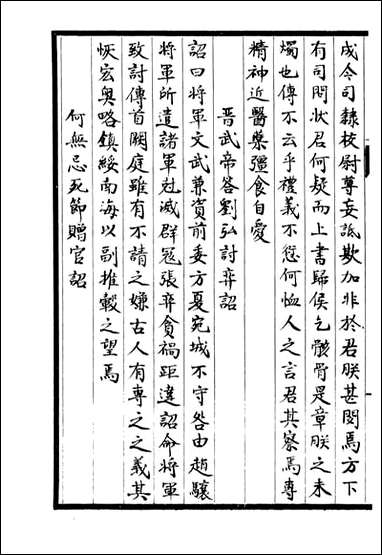 成令司隸校尉尊妄詆欺加非於君朕甚閔焉方下
有司問狀君何疑而上書歸侯乞骸骨是章朕之未
燭也傳不云乎禮義不愆何恤人之言君其察焉專
精神近醫藥彊食自愛
晋武帝答劉弘討弈詔
詔曰將軍文武兼資前委方夏宛城不守咎由趙驤
將軍所遣諸軍尅滅群寇張弈貪禍距違詔命將軍
致討傳首闕庭雖有不請之嫌古人有專之之義其
恢宏奥略鎮綏南海以副推轂之望焉
何無忌死節贈官詔